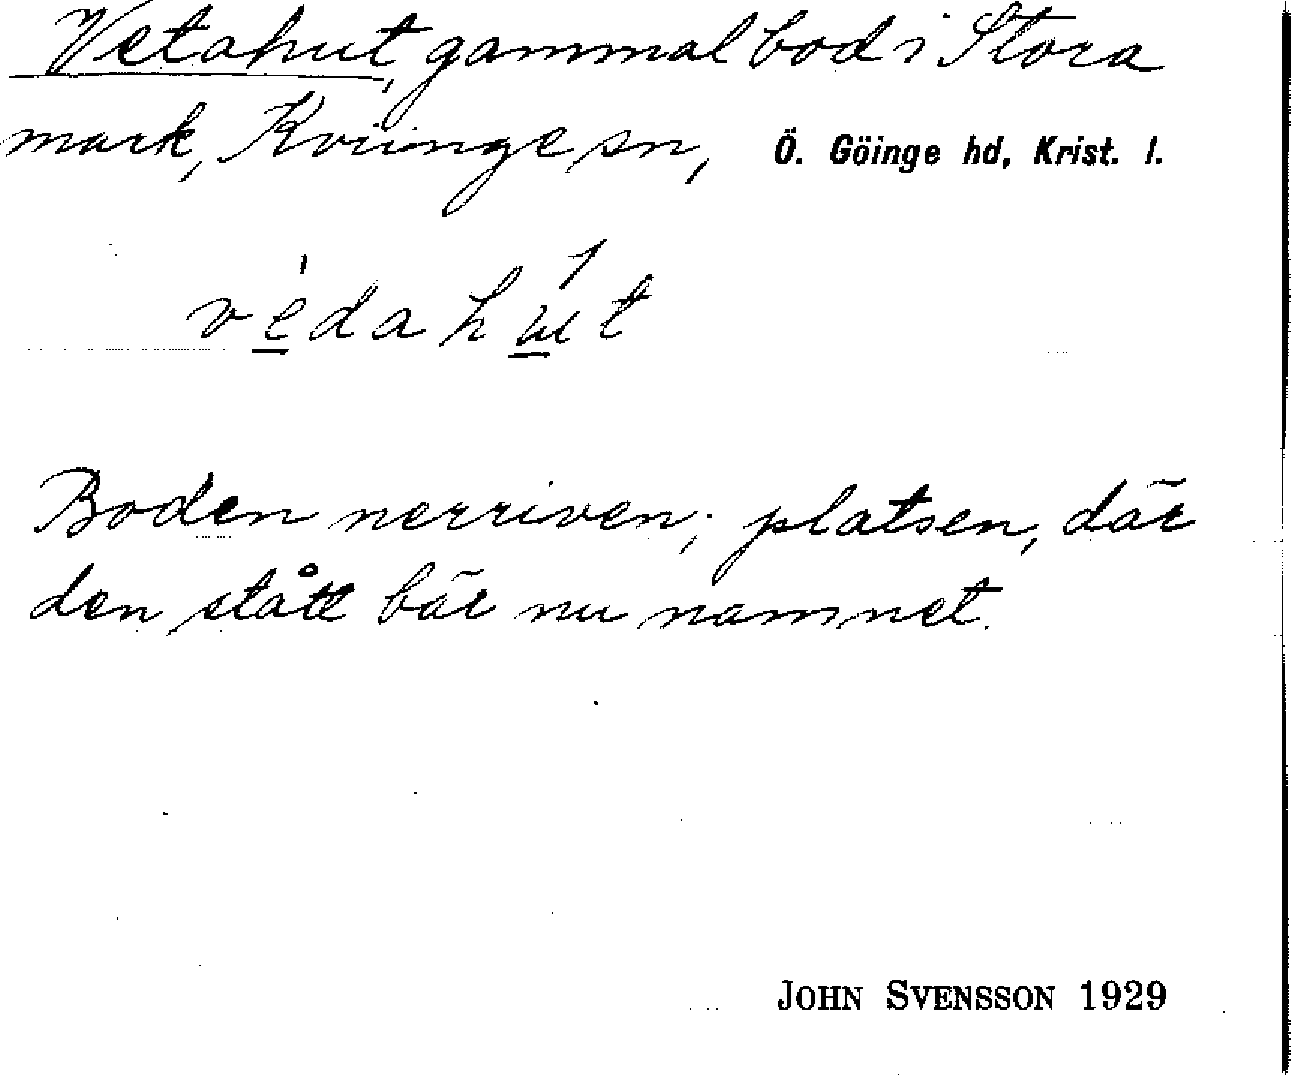 Vetahut, gammal bod i Stora
mark, Kviinge sn, Ö. Göinge hd, Krist. l.
védahút
Boden nerriven; platsen, där
den stått bär nu namnet.
JOHN SVENSSON 1929